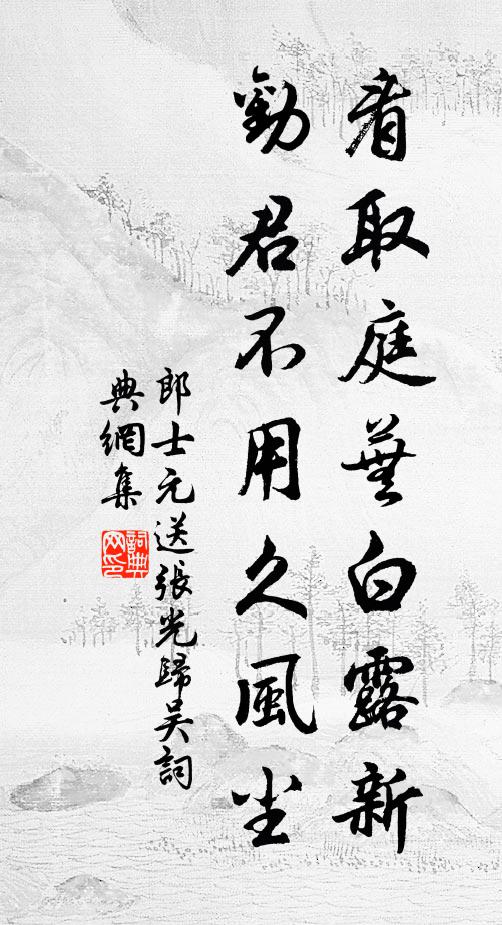 看取庭蕪白露新
勸君不用久風塵
郎士元送張光歸吳詞
典網集
詞典网印